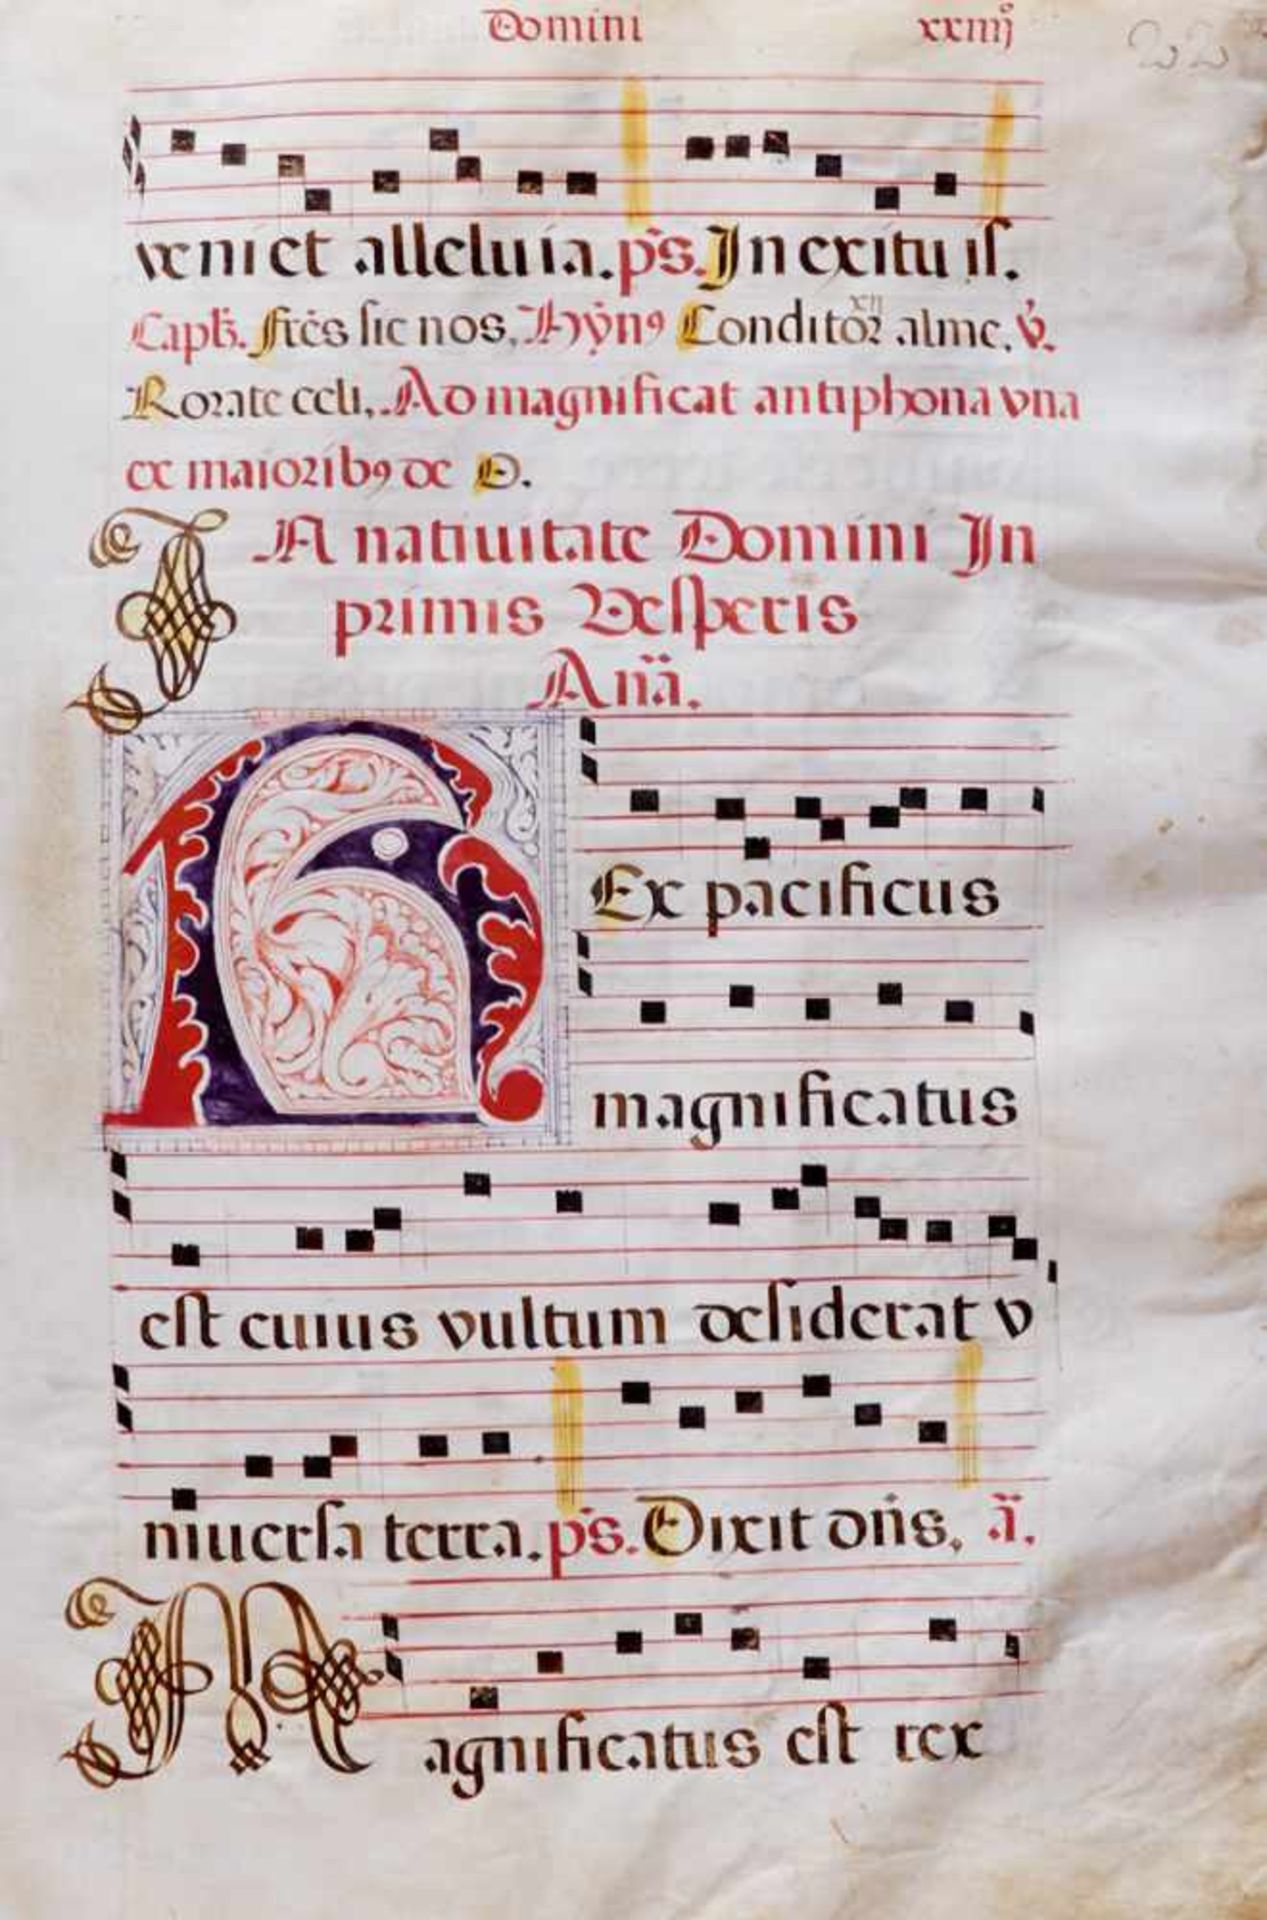 Domini xxiiijº 22
veniet alleluia. ps. In exitu isł.
Capłm. Fr̃es sic nos. Hỹnꝰ Conditor xij alme. ỹ.
Rorate celi. Ad magnificat antiphona vna
ex maioribꝰ de O.
IN natiuitate Domini In
primis Vesperis
Anã.
REx pacificus
magnificatus
est cuius vultum desiderat v
niuersa terra. ps. Dixit dñs. ã.
Magnificatus est rex